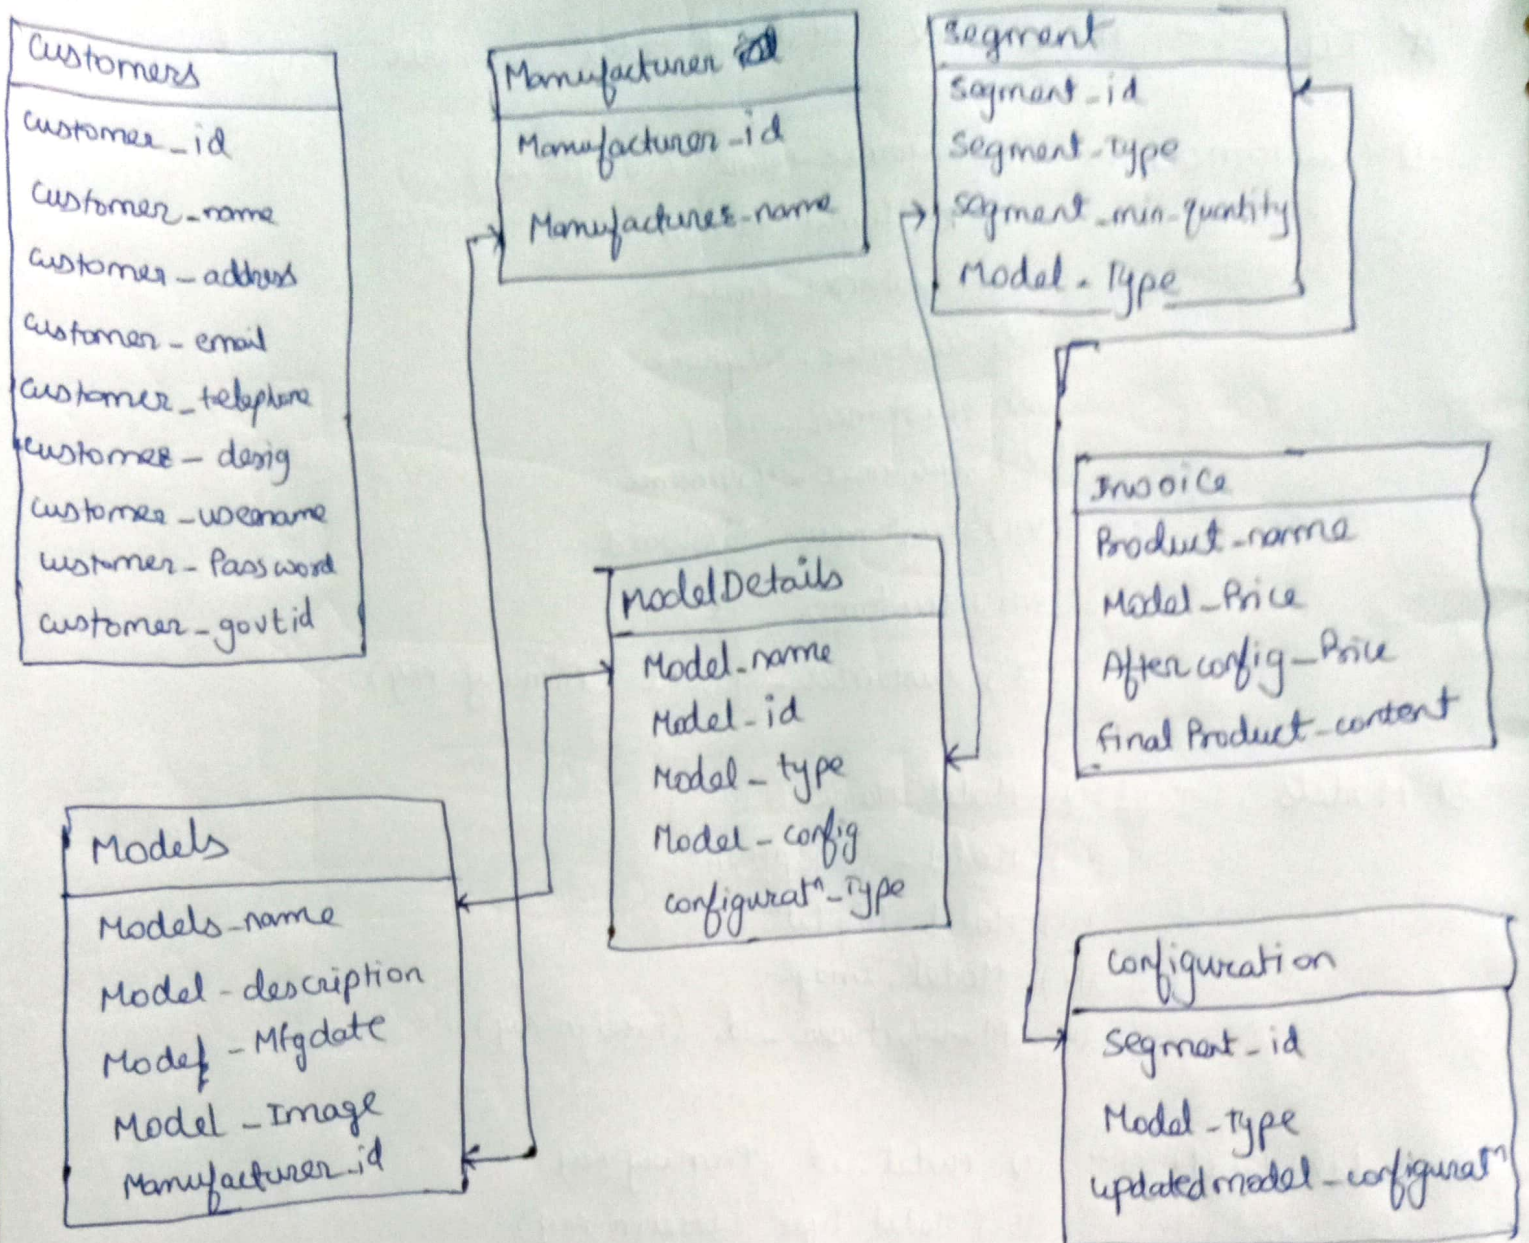 Customers
customer_id
customer_name
customer_address
customer_email
customer_telephone
customer_desig
customer_username
customer_Password
customer_govtid
Manufacturer
Manufacturer_id
Manufacturer_name
Segment
segment_id
segment_Type
segment_min_quantity
Model_Type
ModelDetails
Model_name
Model_id
Model_type
Model_config
configuratⁿ_Type
Invoice
Product_name
Model_Price
Afterconfig_Price
final Product_content
Models
Models_name
Model_description
Model_Mfgdate
Model_Image
Manufacturer_id
Configuration
segment_id
Model_Type
updatedmodel_configuratⁿ